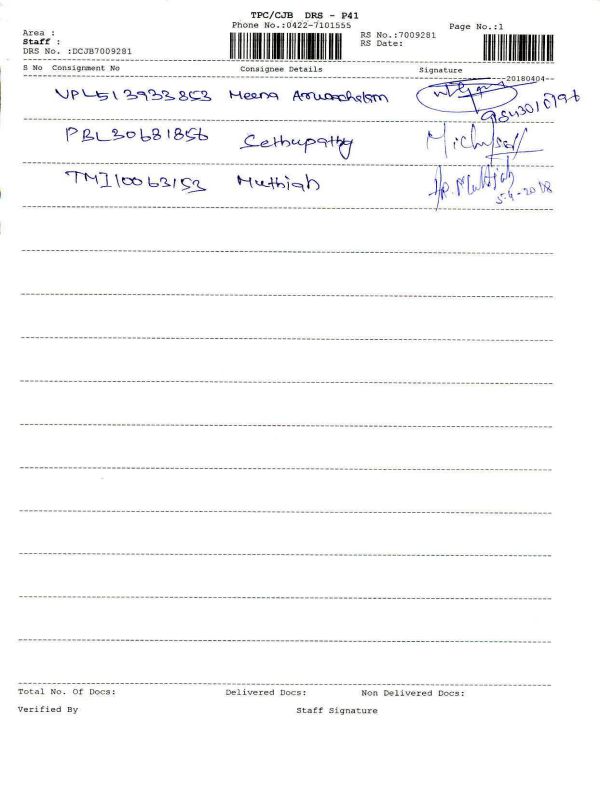 TPC/CJB DRS - P41
Phone No.:0422-7101555
Page No.:1
Area :
RS No.:7009281
Staff :
RS Date:
DRS No. :DCJB7009281
S No Consignment No Consignee Details Signature
20180404
VPL513933853 Meena Arunachalam
PBL30681856 Sethupathy
TMI10063153 Muthiah
5-4-2018
Total No. Of Docs: Delivered Docs: Non Delivered Docs:
Verified By Staff Signature